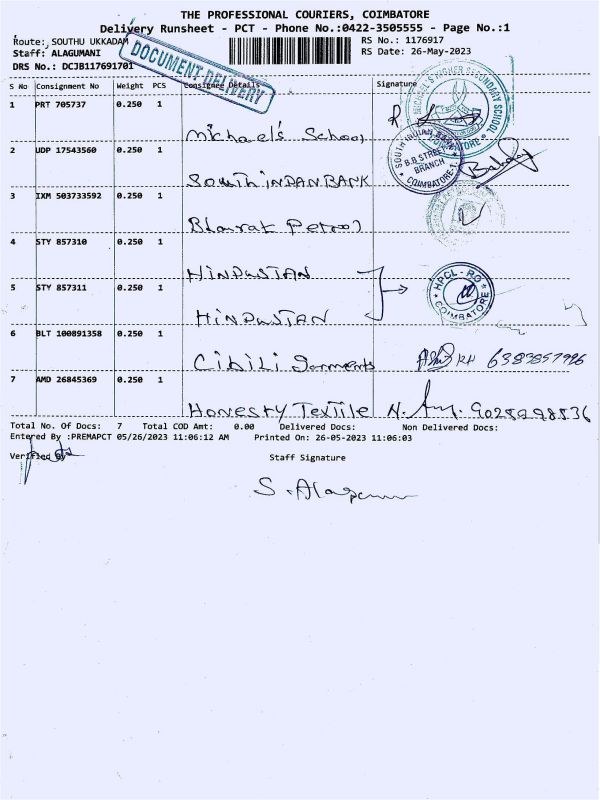 THE PROFESSIONAL COURIERS, COIMBATORE
Delivery Runsheet - PCT - Phone No.:0422-3505555 - Page No.:1
Route: SOUTHU UKKADAM
RS No.: 1176917
Staff: ALAGUMANI
RS Date: 26-May-2023
DRS No.: DCJB117691701
DOCUMENT DELIVERY
S No Consignment No Weight PCS Consignee Details Signature
1 PRT 705737 0.250 1
Michael's School
2 UDP 17543560 0.250 1
SOUTH INDAN BANK
SOUTH INDIAN BANK
B.B. STREET
BRANCH
COIMBATORE-1
3 IXM 503733592 0.250 1
Bharat Petrol
4 STY 857310 0.250 1
HINDUSTAN
5 STY 857311 0.250 1
HINDUSTAN
HPCL - RO
COIMBATORE
6 BLT 100891358 0.250 1
Garments 6383857986
7 AMD 26845369 0.250 1
Honesty Textile
Total No. Of Docs: 7 Total COD Amt: 0.00 Delivered Docs: Non Delivered Docs:
Entered By :PREMAPCT 05/26/2023 11:06:12 AM Printed On: 26-05-2023 11:06:03
Verified By
Staff Signature